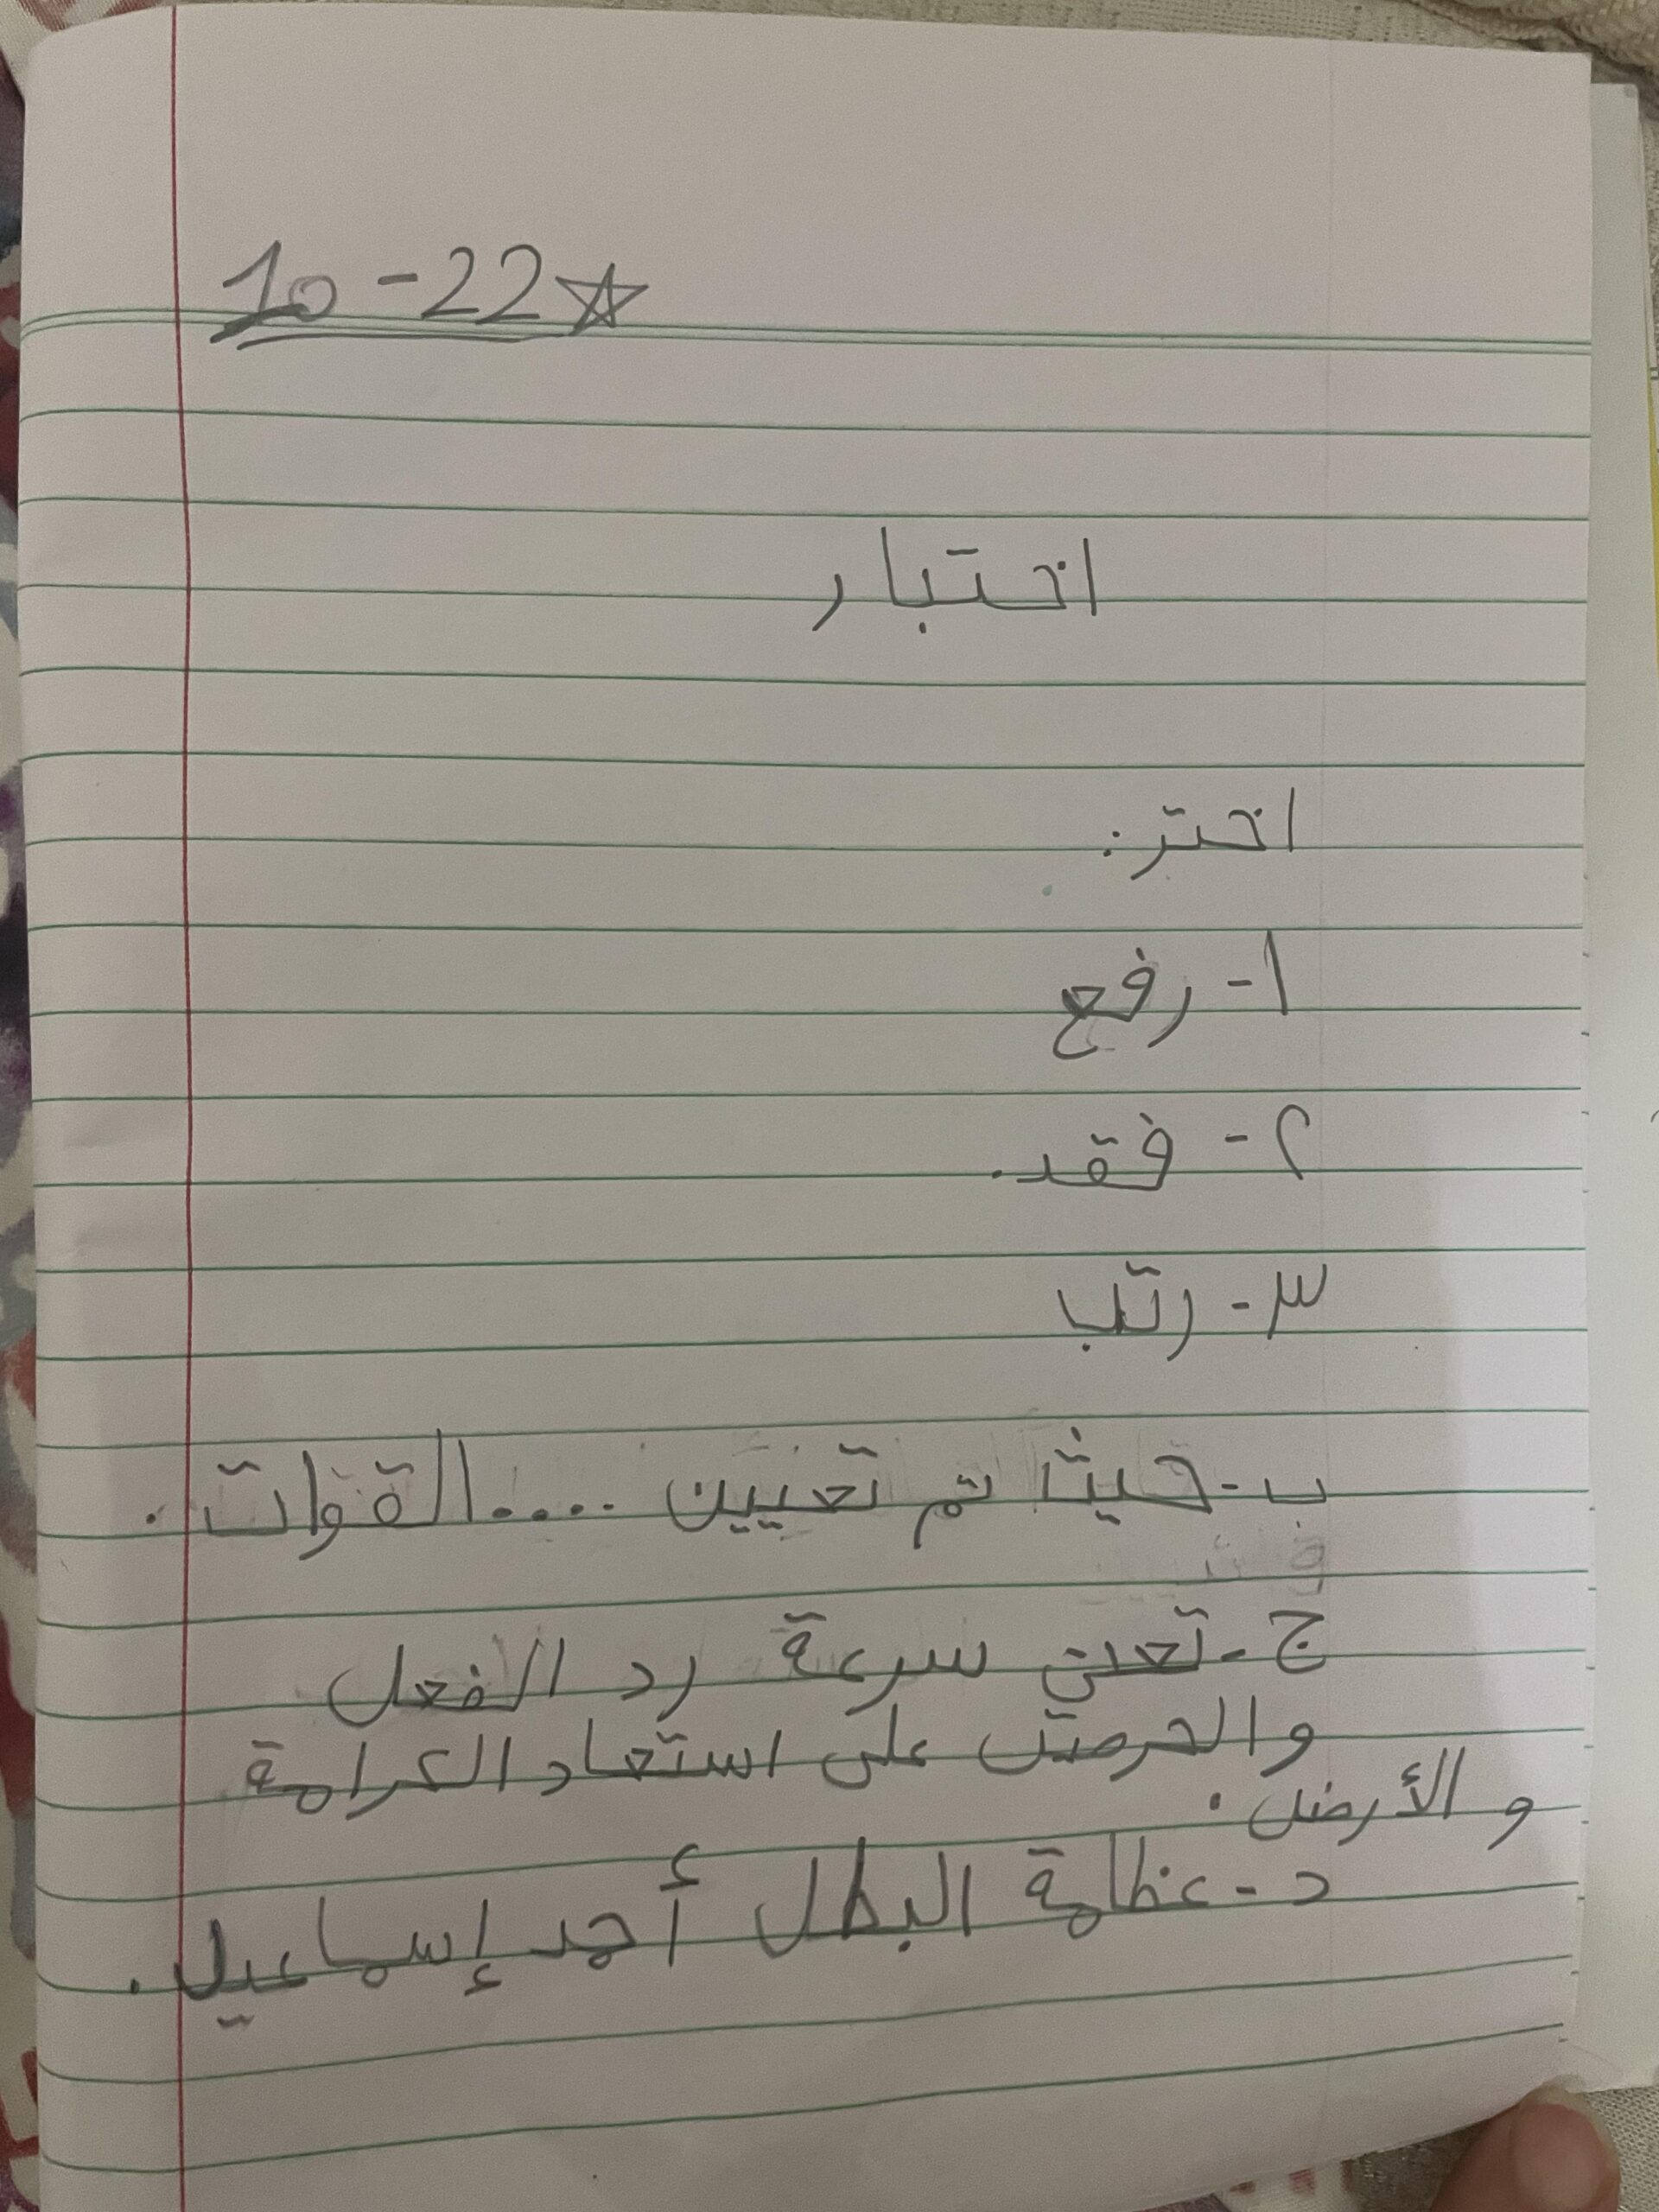 10-22☆
اختبار
اختر:
١- رفع
٢- فقد.
٣- رتّب
ب- حيث تم تعيين .... القوات.
ج- تعنى سرعة رد الفعل
والحرص على استعاد الكرامة
والأرض.
د- عظمة البطل أحمد إسماعيل.